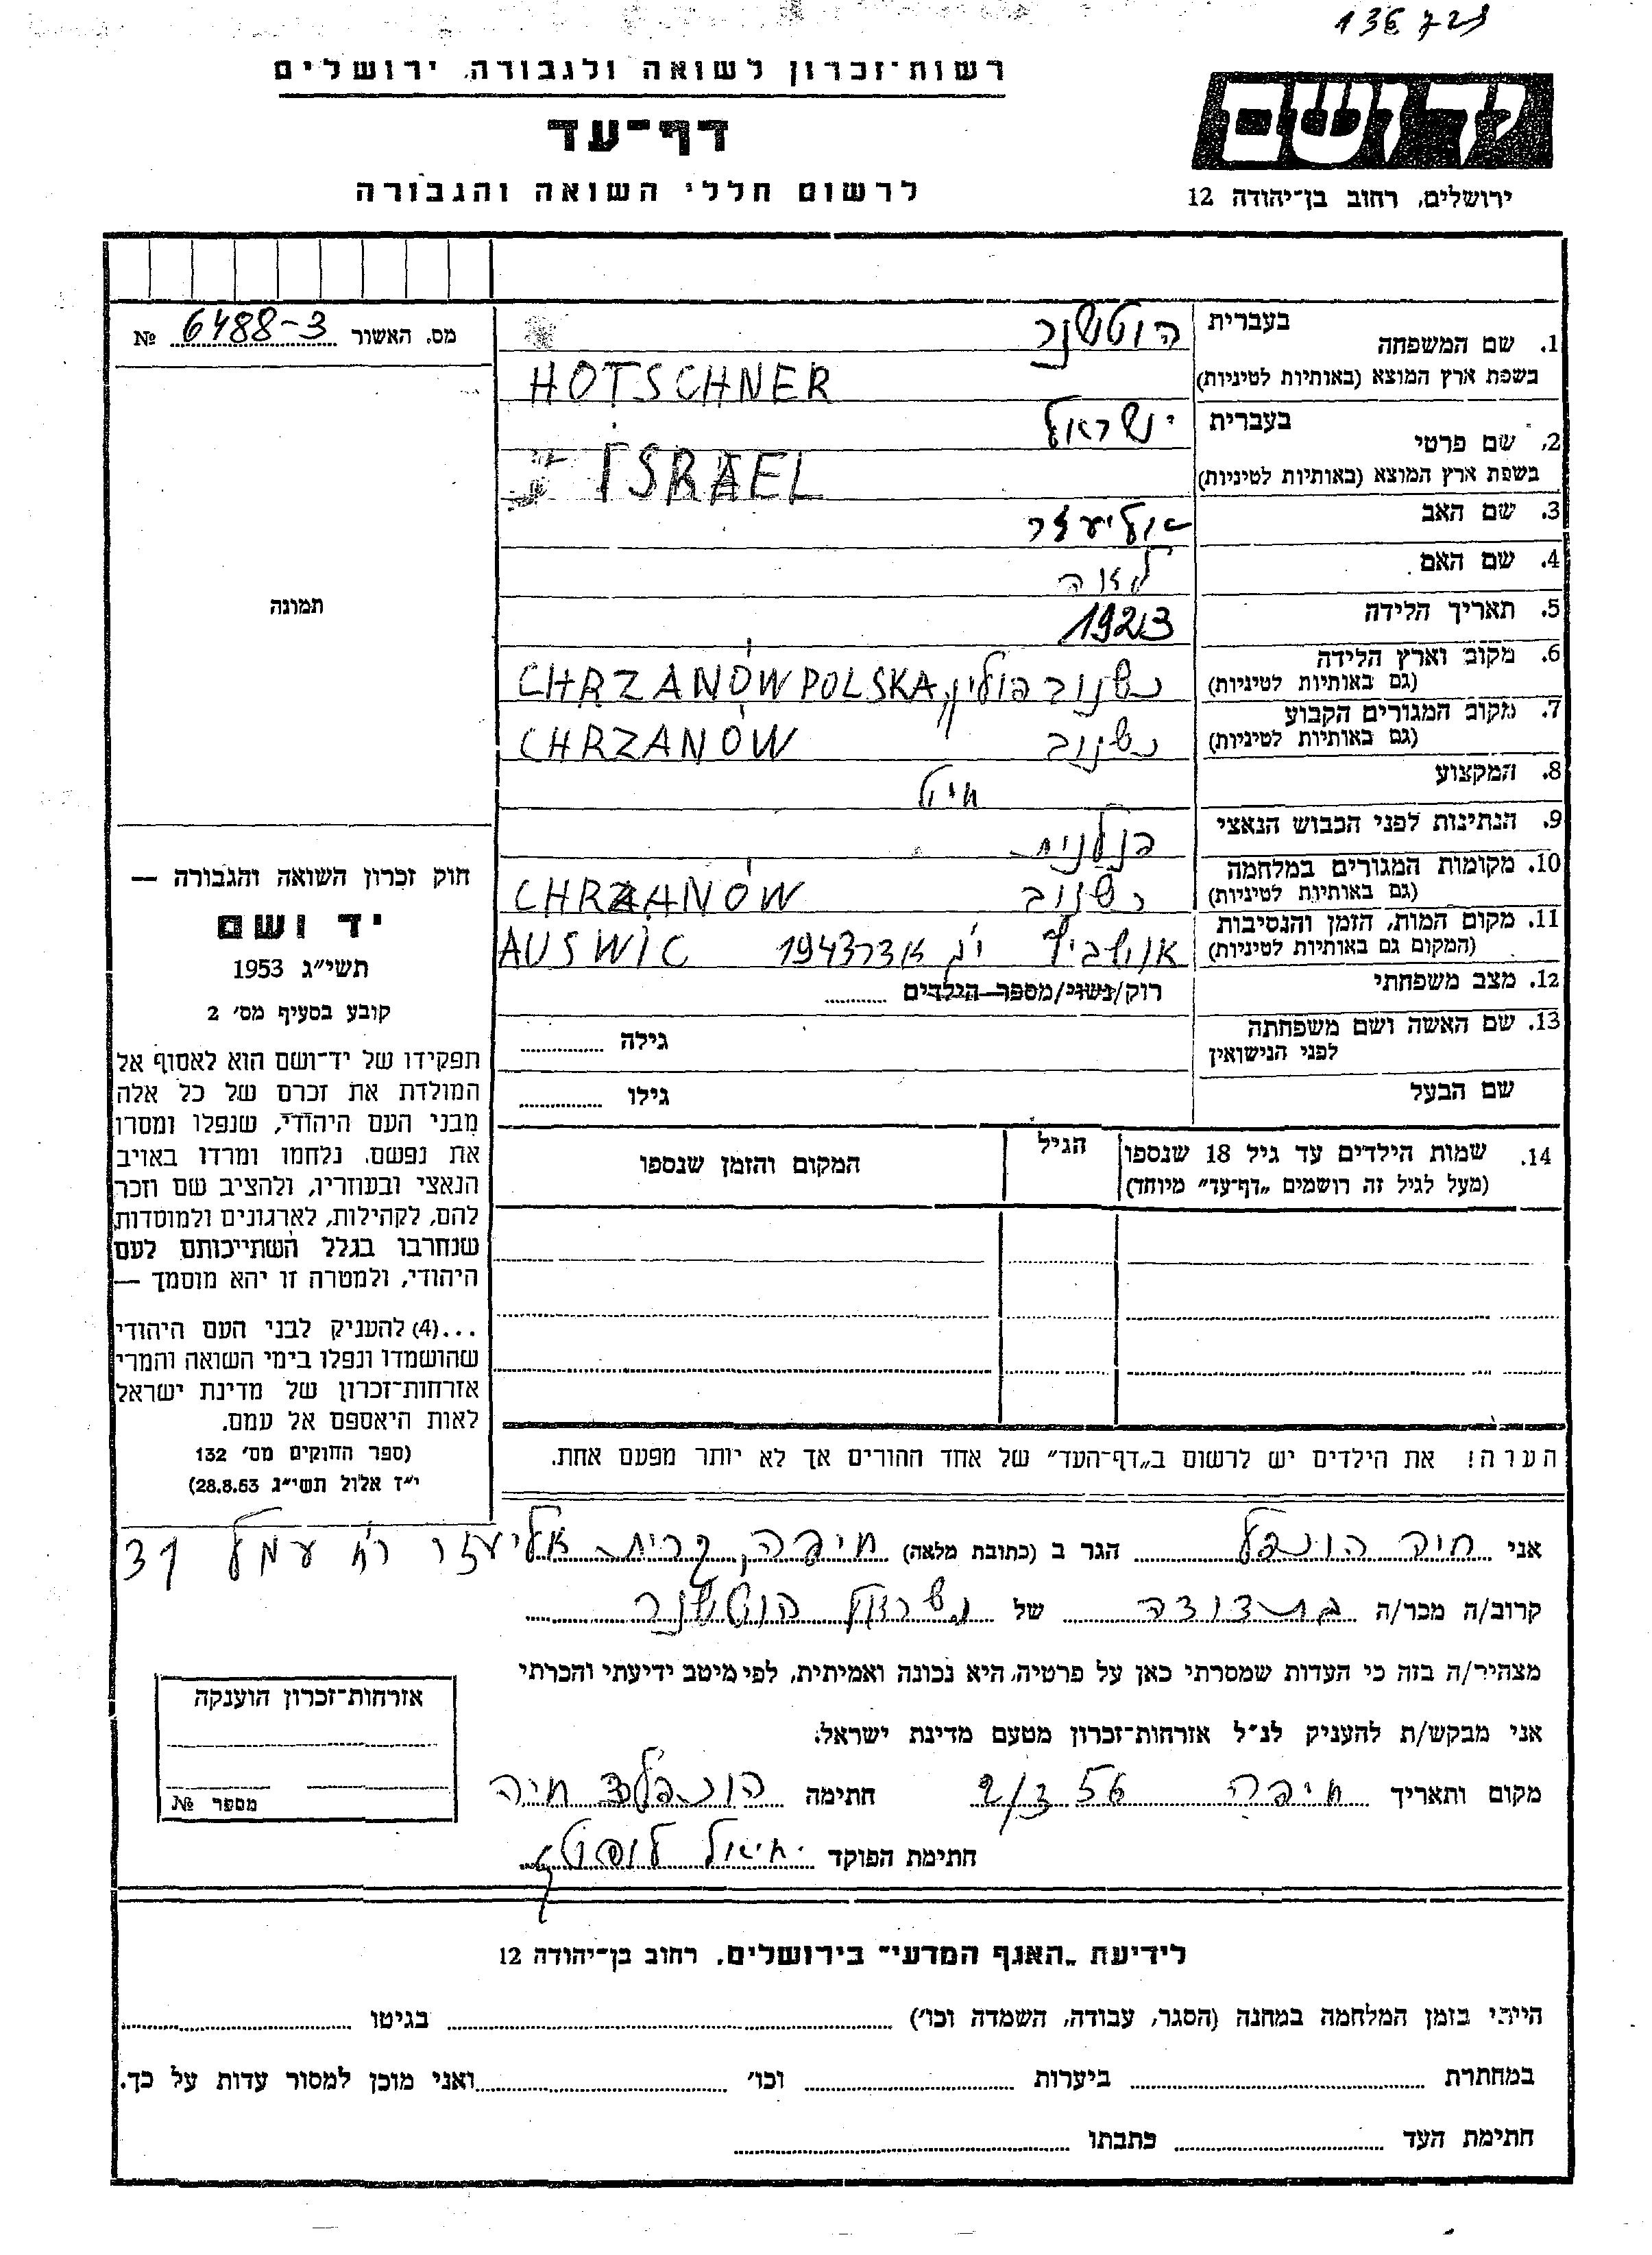 136 727
רשות־זכרון לשואה ולגבורה, ירושלים
ידושם
דף־עד
ירושלים, רחוב בן־יהודה 12
לרשום חללי השואה והגבורה
מס. האשור 6488-3 №
תמונה
1. שם המשפחה בעברית הוטשנר
בשפת ארץ המוצא (באותיות לטיניות) HOTSCHNER
2. שם פרטי בעברית ישראל
בשפת ארץ המוצא (באותיות לטיניות) ISRAEL
3. שם האב אליעזר
4. שם האם לאה
5. תאריך הלידה 1923
6. מקום וארץ הלידה (גם באותיות לטיניות) כשנוב פולין, CHRZANÓW POLSKA
7. מקום המגורים הקבוע (גם באותיות לטיניות) כשנוב CHRZANÓW
8. המקצוע
9. הנתינות לפני הכבוש הנאצי פולנית
10. מקומות המגורים במלחמה (גם באותיות לטיניות) כשנוב CHRZANÓW
11. מקום המות, הזמן והנסיבות (המקום גם באותיות לטיניות) אושביץ י"ג אדר 1943 AUSWIC
12. מצב משפחתי רוק/נשוי/מספר הילדים
13. שם האשה ושם משפחתה לפני הנישואין גילה
שם הבעל גילו
14. שמות הילדים עד גיל 18 שנספו הגיל המקום והזמן שנספו
(מעל לגיל זה רושמים „דף־עד" מיוחד)
הערה! את הילדים יש לרשום ב„דף־העד" של אחד ההורים אך לא יותר מפעם אחת.
חוק זכרון השואה והגבורה —
יד ושם
תשי"ג 1953
קובע בסעיף מס' 2
תפקידו של יד־ושם הוא לאסוף אל
המולדת את זכרם של כל אלה
מבני העם היהודי, שנפלו ומסרו
את נפשם, נלחמו ומרדו באויב
הנאצי ובעוזריו, ולהציב שם וזכר
להם, לקהילות, לארגונים ולמוסדות
שנחרבו בגלל השתייכותם לעם
היהודי, ולמטרה זו יהא מוסמך —
...(4) להעניק לבני העם היהודי
שהושמדו ונפלו בימי השואה והמרי
אזרחות־זכרון של מדינת ישראל
לאות היאספם אל עמם.
(ספר החוקים מס' 132
י"ז אלול תשי"ג 28.8.53)
אני חיה הונפלד הגר ב (כתובת מלאה) חיפה, קרית אליעזר רח עמל 31
קרוב/ה מכר/ה בת דודה של ישראל הוטשנר
מצהיר/ה בזה כי העדות שמסרתי כאן על פרטיה, היא נכונה ואמיתית, לפי מיטב ידיעתי והכרתי
אני מבקש/ת להעניק לנ"ל אזרחות־זכרון מטעם מדינת ישראל.
מקום ותאריך חיפה 2/3 56 חתימה הונפלד חיה
חתימת הפוקד יחיאל
אזרחות־זכרון הוענקה
מספר №
לידיעת „האגף המדעי" בירושלים, רחוב בן־יהודה 12
הייתי בזמן המלחמה במחנה (הסגר, עבודה, השמדה וכו') בגיטו
במחתרת ביערות וכו' ואני מוכן למסור עדות על כך.
חתימת העד כתבתו